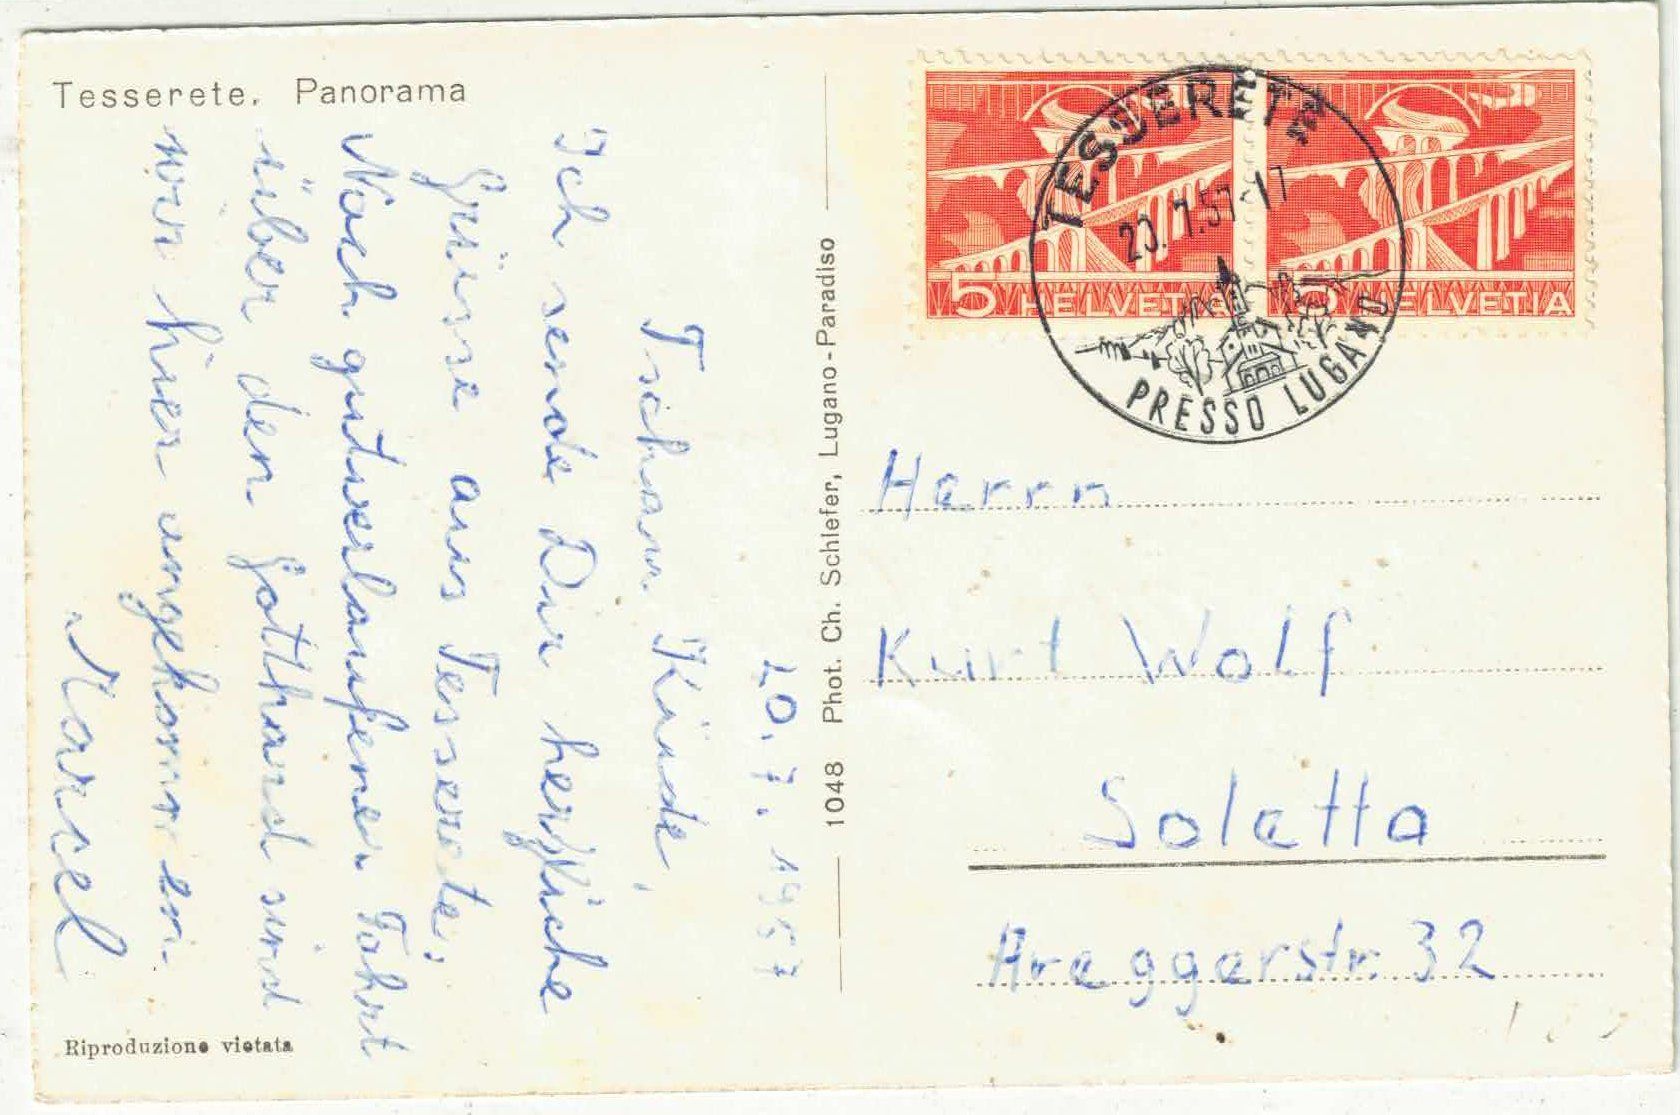 Tesserete. Panorama
20.7.1957
Tschau Küde,
Ich sende Dir herzliche
Grüsse aus Tesserete.
Nach gutverlaufener Fahrt
über den Gotthard sind
wir hier angekommen.
Marcel
Riproduzione vietata
1048 Phot. Ch. Schiefer, Lugano-Paradiso
5 HELVETIA
5 HELVETIA
TESSERETE
20.7.57-17
PRESSO LUGANO
Herrn
Kurt Wolf
Soletta
Areggerstr. 32